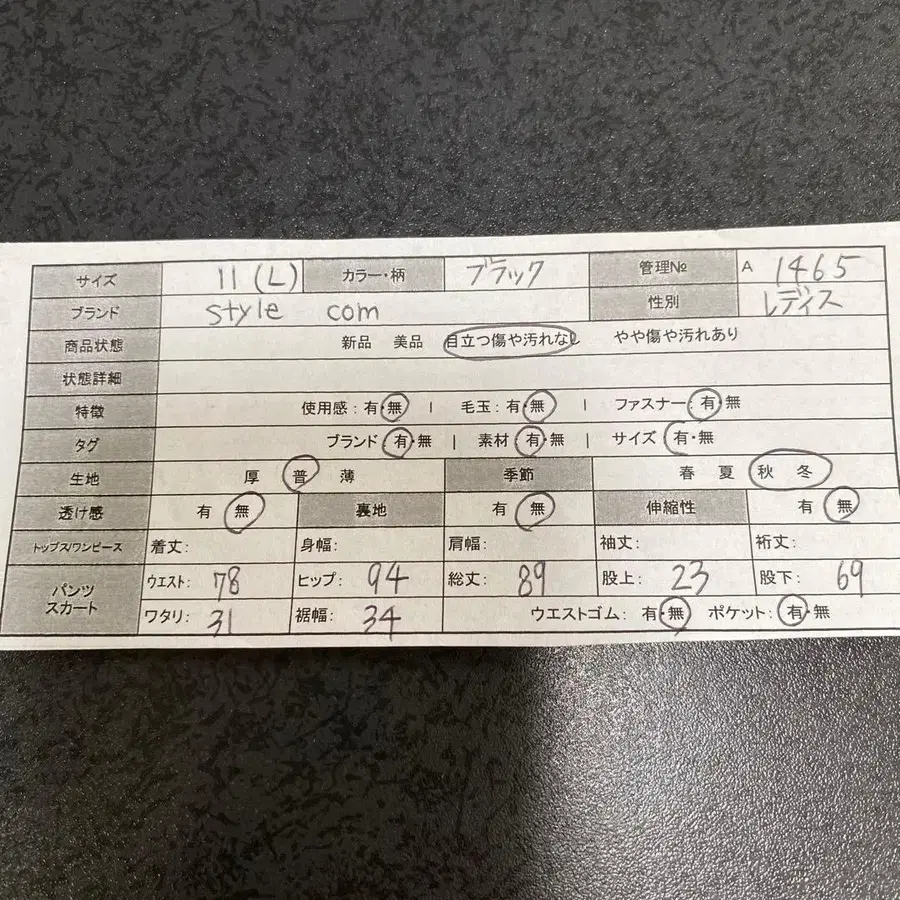 サイズ 11(L) カラー・柄 ブラック 管理№ A 1465
ブランド style com 性別 レディス
商品状態 新品 美品 目立つ傷や汚れなし やや傷や汚れあり
状態詳細
特徴 使用感:有・無 | 毛玉:有・無 | ファスナー:有・無
タグ ブランド 有・無 | 素材 有・無 | サイズ 有・無
生地 厚 普 薄 季節 春 夏 秋 冬
透け感 有 無 裏地 有 無 伸縮性 有 無
トップス/ワンピース 着丈: 身幅: 肩幅: 袖丈: 裄丈:
パンツ スカート ウエスト: 78 ヒップ: 94 総丈: 89 股上: 23 股下: 69
ワタリ: 31 裾幅: 34 ウエストゴム: 有・無 ポケット: 有・無